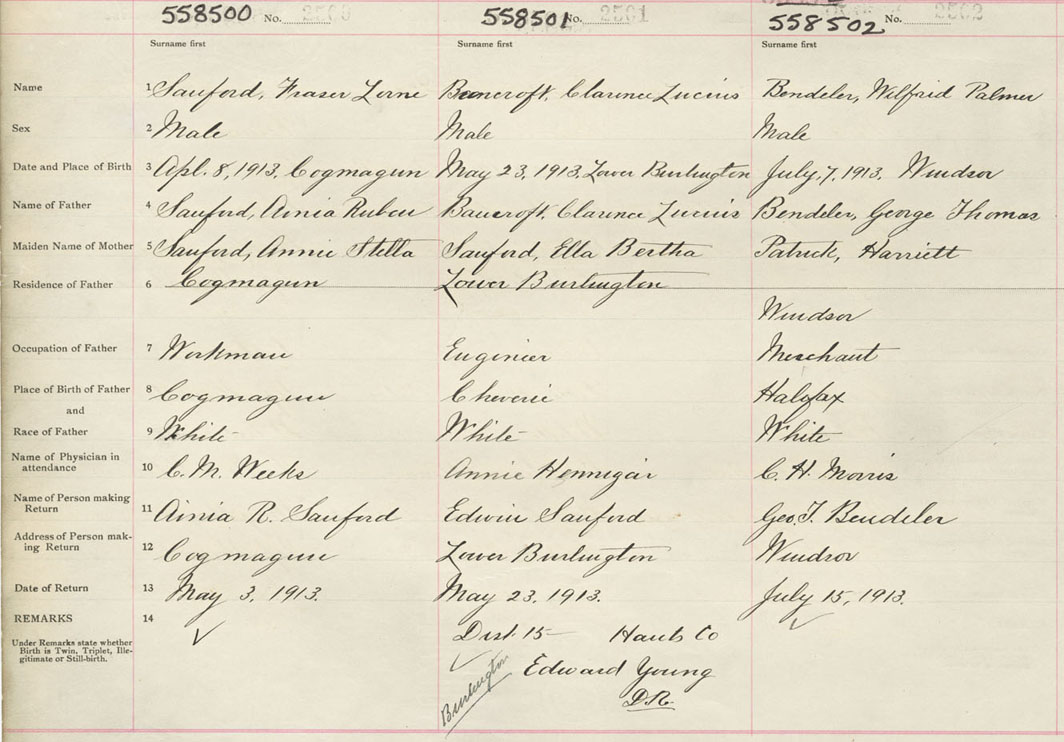 558500 No. 2500 558501 No. 2501 558502 No. 2502
Surname first Surname first Surname first
Name 1 Sanford, Fraser Lorne Bancroft, Clarence Lucius Bendeler, Wilfrid Palmer
Sex 2 Male Male Male
Date and Place of Birth 3 Apl. 8, 1913, Cogmagun May 23, 1913, Lower Burlington July, 7, 1913, Windsor
Name of Father 4 Sanford, Ainia Ruben Bancroft, Clarence Lucius Bendeler, George Thomas
Maiden Name of Mother 5 Sanford, Annie Stella Sanford, Ella Bertha Patrick, Harriett
Residence of Father 6 Cogmagun Lower Burlington
Windsor
Occupation of Father 7 Workman Enginier Merchant
Place of Birth of Father 8 Cogmagun Cheverie Halofax
and
Race of Father 9 White White White
Name of Physician in
attendance 10 C. M. Weeks Annie Hennigar C. H. Morris
Name of Person making
Return 11 Ainia R. Sanford Edwin Sanford Geo. T. Bendeler
Address of Person mak-
ing Return 12 Cogmagun Lower Burlington Windsor
Date of Return 13 May 3, 1913. May 23, 1913. July 15, 1913.
REMARKS 14
Under Remarks state whether
Birth is Twin, Triplet, Ille-
gitimate or Still-birth.
Dist. 15 Hants Co
Edward Young
D.R.
Burlington